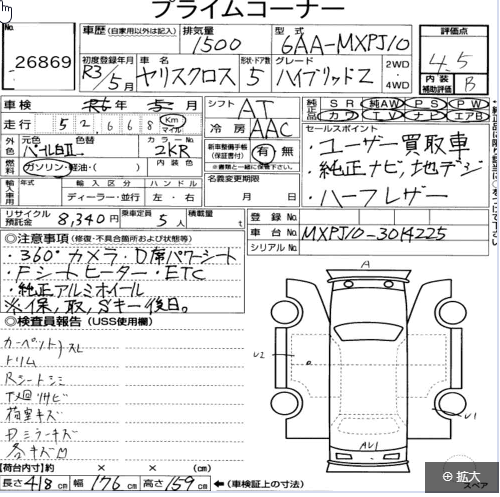 プライムコーナー
No. 26869
車歴 (自家用以外は記入) 排気量 1500 型式 6AA-MXPJ10 評価点 4.5
初度登録年月 R3/5月 車名 ヤリスクロス 形状・ドア数 5 グレード ハイブリッドZ 2WD・4WD 内装補助評価 B
車検 R6年 5月 シフト AT 純正品 SR 純AW PS PW
カワ TV ナビ エアB
走行 52,668 Km マイル 冷房 AAC セールスポイント
外色 元色 パールⅡ カラーNo. 2KR 新車整備手帳(保証書付) 有 無 ・ユーザー買取車
※書類と一緒に保管下さい。
燃料 ガソリン・軽油・( ) 内装色 名義変更期限 月 日 ・純正ナビ,地デジ
輸入車用 年式 輸入区分 ハンドル ・ハーフレザー
ディーラー・並行 左・右
リサイクル預託金 8,340円 乗車定員 5人 積載量 t 登録No.
車台No. MXPJ10-3014225
シリアルNo.
◎注意事項 (修復・不具合箇所および状態等)
・360°カメラ・D席パワーシート
・Fシートヒーター・ETC
・純正アルミホイール
※保,取,Sキー後日。
◎検査員報告 (USS使用欄)
カーペット
トリム スレ
Rシートシミ
荷室キズ
ミラーキズ
各キズ凹
A
U2
U1
AU1
【荷台内寸】約 × × (cm)
長さ 418cm 幅 176cm 高さ 159cm ←(車検証上の寸法)
スペア
拡大